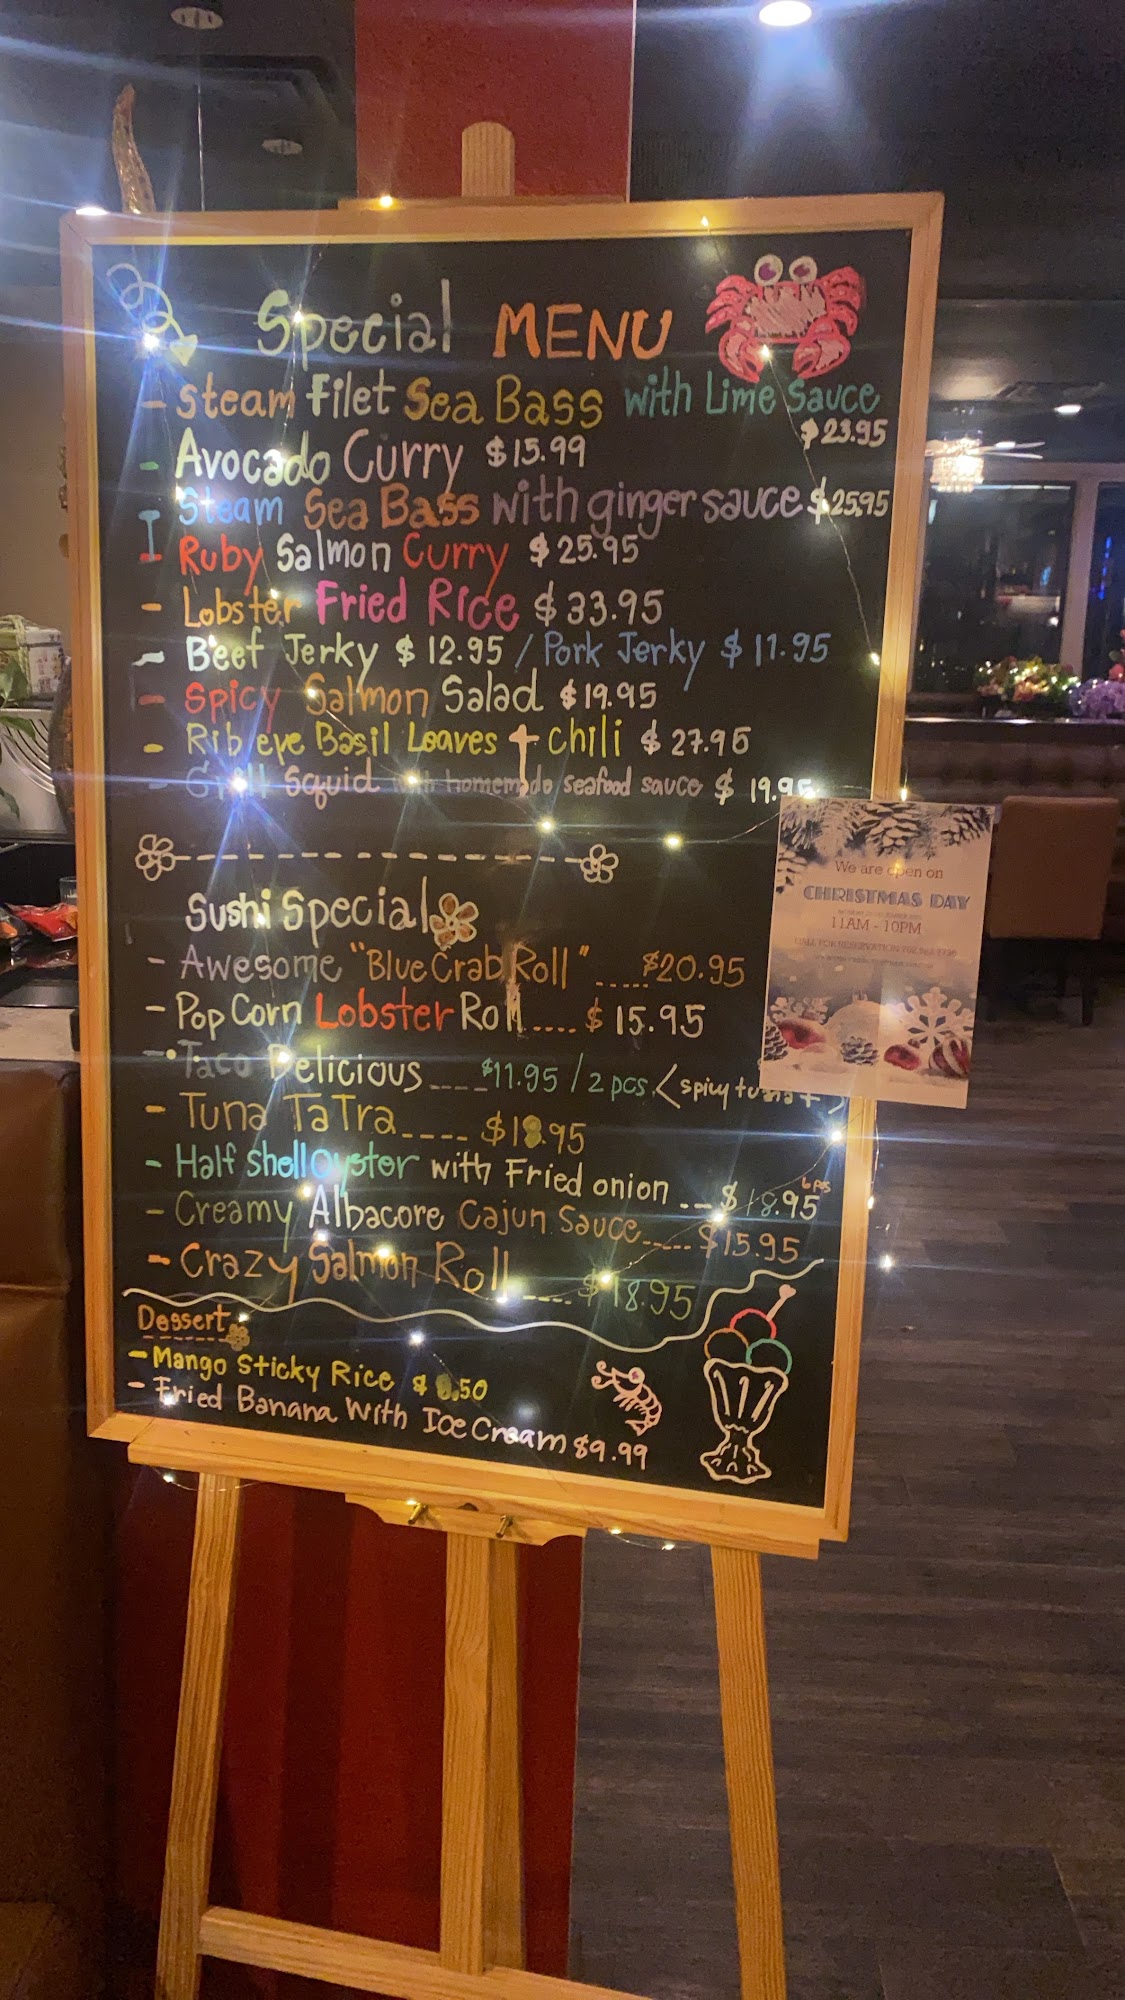 Special MENU
- Steam Filet Sea Bass with Lime Sauce
$23.95
- Avocado Curry $15.99
Steam Sea Bass with ginger sauce $25.95
- Ruby Salmon Curry $25.95
- Lobster Fried Rice $33.95
- Beef Jerky $12.95 / Pork Jerky $11.95
- Spicy Salmon Salad $19.95
- Rib eye Basil Leaves + chili $27.95
- Grill Squid with homemade seafood sauce $19.95
Sushi Special
- Awesome "Blue Crab Roll" ..... $20.95
- Pop Corn Lobster Roll .... $15.95
- Taco Delicious ---- $11.95 / 2 pcs (spicy tuna
- Tuna TaTra ---- $18.95
6 pcs
- Half shell Oyster with Fried onion -- $18.95
- Creamy Albacore Cajun Sauce ..... $15.95
- Crazy Salmon Roll ---- $18.95
Dessert
- Mango Sticky Rice $ .50
- Fried Banana With Ice Cream $9.99
We are open on
CHRISTMAS DAY
11AM - 10PM
CALL FOR RESERVATION